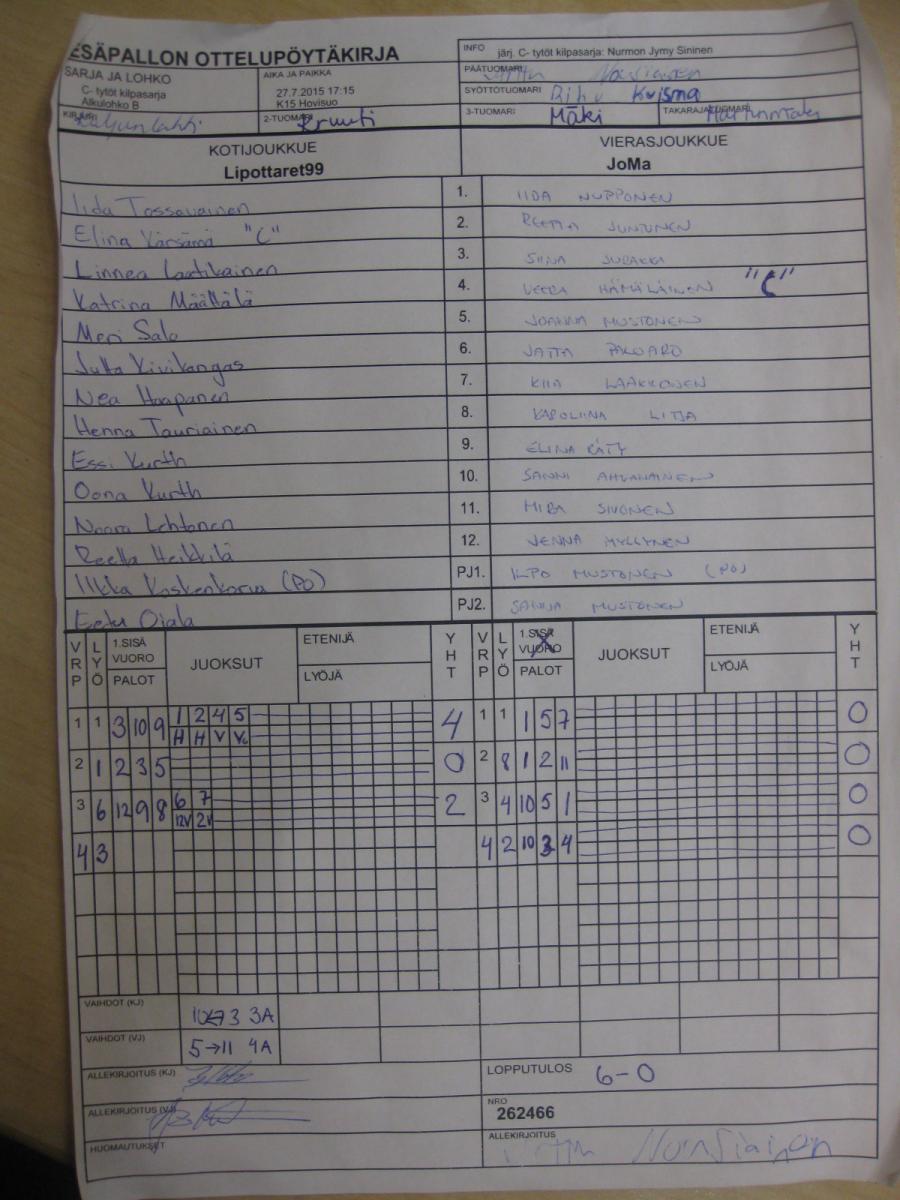 ESÄPALLON OTTELUPÖYTÄKIRJA
INFO järj. C- tytöt kilpasarja: Nurmon Jymy Sininen
SARJA JA LOHKO
C- tytöt kilpasarja
Alkulohko B
AIKA JA PAIKKA
27.7.2015 17:15
K15 Hovisuo
PÄÄTUOMARI
SYÖTTÖTUOMARI Kuisma
KIRJURI
2-TUOMARI
3-TUOMARI Mäki
TAKARAJATUOMARI
KOTIJOUKKUE
Lipottaret99
VIERASJOUKKUE
JoMa
Iida Tossavainen 1. IIDA NUPPONEN
Elina Kärsämä "C" 2. REETTA JUNTUNEN
Linnea Laatikainen 3. SIINA
Katrina Määttälä 4. VEERA HÄMÄLÄINEN "C"
Meri Salo 5. JOANNA MUSTONEN
Jutta Kivikangas 6. JATTA
Nea Haapanen 7. KIIA LAAKKONEN
Henna Tauriainen 8. KAROLIINA LITJA
Essi Kurth 9. ELINA RÄTY
Oona Kurth 10. SANNI AHVENAINEN
Noora Lehtonen 11. MIRA SIVONEN
Reetta Heikkilä 12. JENNA MYLLYNEN
Ilkka Koskenkorva (PO) PJ1. ILPO MUSTONEN (PO)
Eetu Ojala PJ2. SANNA MUSTONEN
VRP LYÖ 1.SISÄ VUORO PALOT JUOKSUT ETENIJÄ LYÖJÄ YHT VRP LYÖ 1.SISÄ VUORO PALOT JUOKSUT ETENIJÄ LYÖJÄ YHT
1 1 3 10 9 1 2 4 5 4 1 1 1 5 7 0
H H V
2 1 2 3 5 0 2 8 1 2 11 0
3 6 12 9 8 6 7 2 3 4 10 5 1 0
12V 2V
4 3 4 2 10 3 4 0
VAIHDOT (KJ) 3 3A
VAIHDOT (VJ) 5→11 4A
ALLEKIRJOITUS (KJ)
LOPPUTULOS 6-0
ALLEKIRJOITUS (VJ)
NRO
262466
HUOMAUTUKSET
ALLEKIRJOITUS